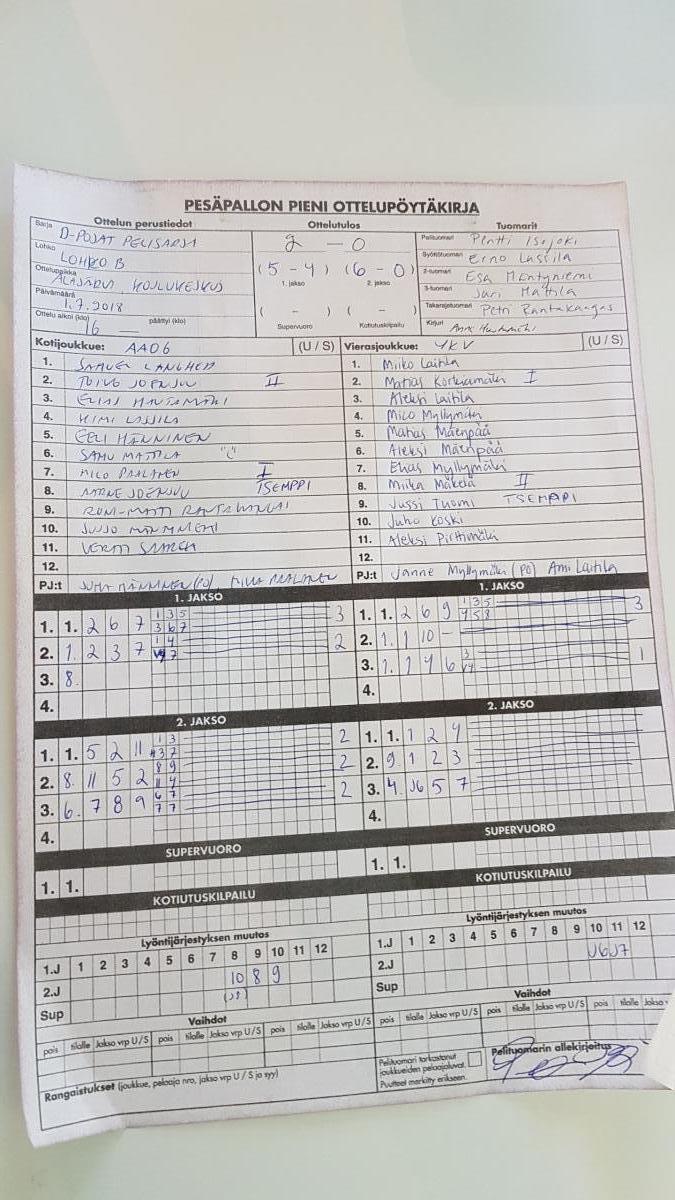 PESÄPALLON PIENI OTTELUPÖYTÄKIRJA
Ottelun perustiedot Ottelutulos Tuomarit
Sarja D-POJAT PELISARJA
Lohko LOHKO B
Ottelupaikka ALAJÄRVI KOULUKESKUS
Päivämäärä 1.7.2018
Ottelu alkoi (klo) 16 päättyi (klo)
2 - 0
(5 - 4) (6 - 0)
1. jakso 2. jakso
( - ) ( - )
Supervuoro Kotiutuskilpailu
Pelituomari Pentti Isojoki
Syöttötuomari Erno Lassila
2-tuomari Esa Mäntyniemi
3-tuomari Jari Mattila
Takarajatuomari Petri Rantakangas
Kirjuri
Kotijoukkue: AA06 (U / S)
1. SAMUEL LANGHED
2. TOIVO JOENSUU II
3. ELIAS HAUTAMÄKI
4. KIMI LASSILA
5. EELI HÄNNINEN
6. SAMU MATTILA "C"
7. NILO PAALANEN I
8. AARNE JOENSUU TSEMPPI
9. RONI-MATTI RANTAKANGAS
10. JUUSO
11. VERTTI
12.
PJ:t JUHA HÄNNINEN (PO) MIKA PAALANEN
Vierasjoukkue: YKV (U / S)
1. Miiko Laitila
2. Matias Korkiamäki I
3. Aleksi Laitila
4. Mico Myllymäki
5. Matias Mäenpää
6. Aleksi Mäenpää
7. Elias Myllymäki
8. Miika Mäkelä II
9. Jussi Tuomi TSEMPPI
10. Juho Koski
11. Aleksi Pirttimäki
12.
PJ:t Janne Myllymäki (PO) Ami Laitila
1. JAKSO
1. 1. 2 6 7 1 3 5 3 6 7 3
2. 1. 2 3 7 1 4 7 2
3. 8.
4.
1. JAKSO
1. 1. 2 6 9 1 3 5 4 5 8 3
2. 1. 1 10 -
3. 1. 1 4 6 3 1
4.
2. JAKSO
1. 1. 5 2 11 1 3 3 7 2
2. 8. 11 5 2 8 9 11 4 2
3. 6. 7 8 9 6 7 7 7 2
4.
2. JAKSO
1. 1. 1 2 4
2. 9 1 2 3
3. 4. 6 5 7
4.
SUPERVUORO
1. 1.
SUPERVUORO
1. 1.
KOTIUTUSKILPAILU
KOTIUTUSKILPAILU
Lyöntijärjestyksen muutos
1 2 3 4 5 6 7 8 9 10 11 12
1.J
2.J 10 8 9
Sup
Lyöntijärjestyksen muutos
1 2 3 4 5 6 7 8 9 10 11 12
1.J
2.J
Sup
Vaihdot
pois tilalle Jakso vrp U/S pois tilalle Jakso vrp U/S pois tilalle Jakso vrp U/S
Vaihdot
pois tilalle Jakso vrp U/S pois tilalle Jakso vrp U/S pois tilalle Jakso
Rangaistukset (joukkue, pelaaja nro, jakso vrp U / S ja syy)
Pelituomari tarkastanut
joukkueiden pelaajaluvat.
Puutteet merkitty erikseen.
Pelituomarin allekirjoitus